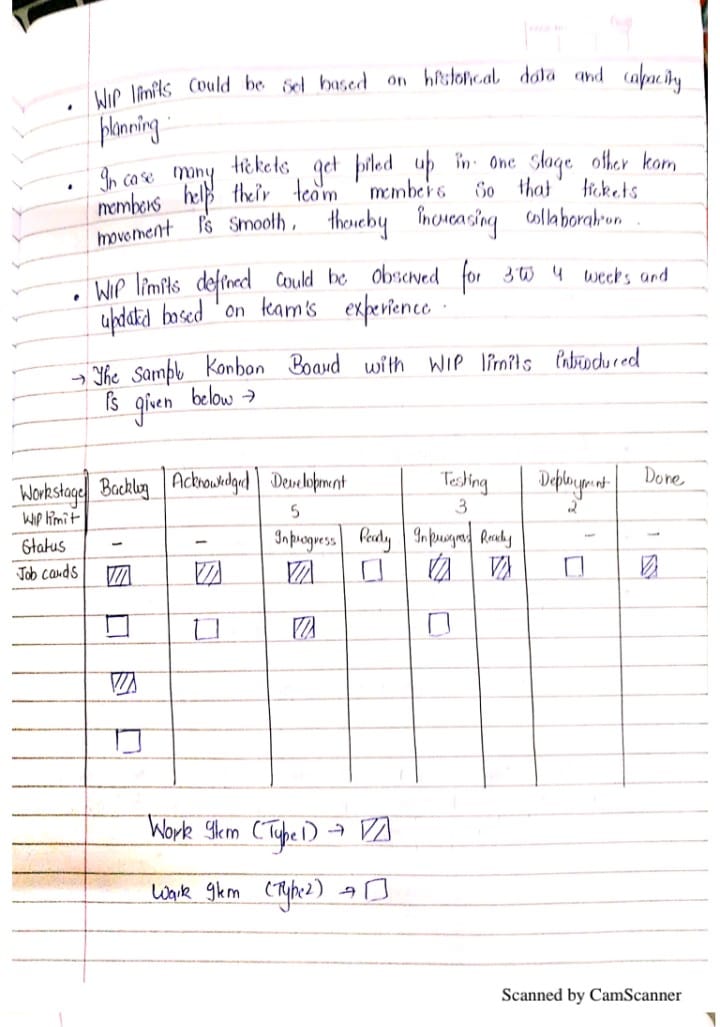 • WIP limits could be set based on historical data and capacity
planning.
• In case many tickets get piled up in one stage other team
members help their team members so that tickets
movement is smooth, thereby increasing collaboration.
• WIP limits defined could be observed for 3 to 4 weeks and
updated based on team's experience.
→ The sample Kanban Board with WIP limits introduced
is given below →
Workstage Backlog Acknowledged Development Testing Deployment Done
WIP limit 5 3 2
Status - - Inprogress Ready Inprogress Ready - -
Job cards
Work Item (Type1) →
Work Item (Type2) →
Scanned by CamScanner